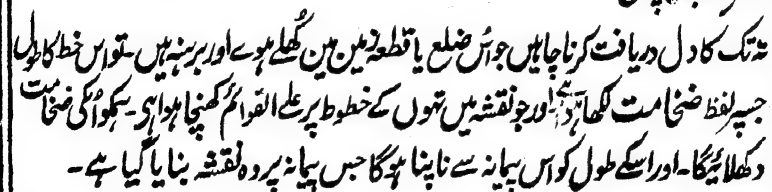 تہ تک کا دل دریافت کرنا چاہیں جو اُس ضلع یا قطعہ زمین مین کُھلے ہوے اور برہنہ ہیں۔ تو اس خط کا طول
جسپر لفظ ضخامت لکھا ہے اور جو نقشہ میں تہوں کے خطوط پر علے القوائم کھنچا ہوا ہی۔ ہمکو اُنکی ضخامت
دکھلائیگا۔ اور اسکے طول کو اس پیمانہ سے ناپنا ہوگا جس پیمانہ پر وہ نقشہ بنایا گیا ہے۔